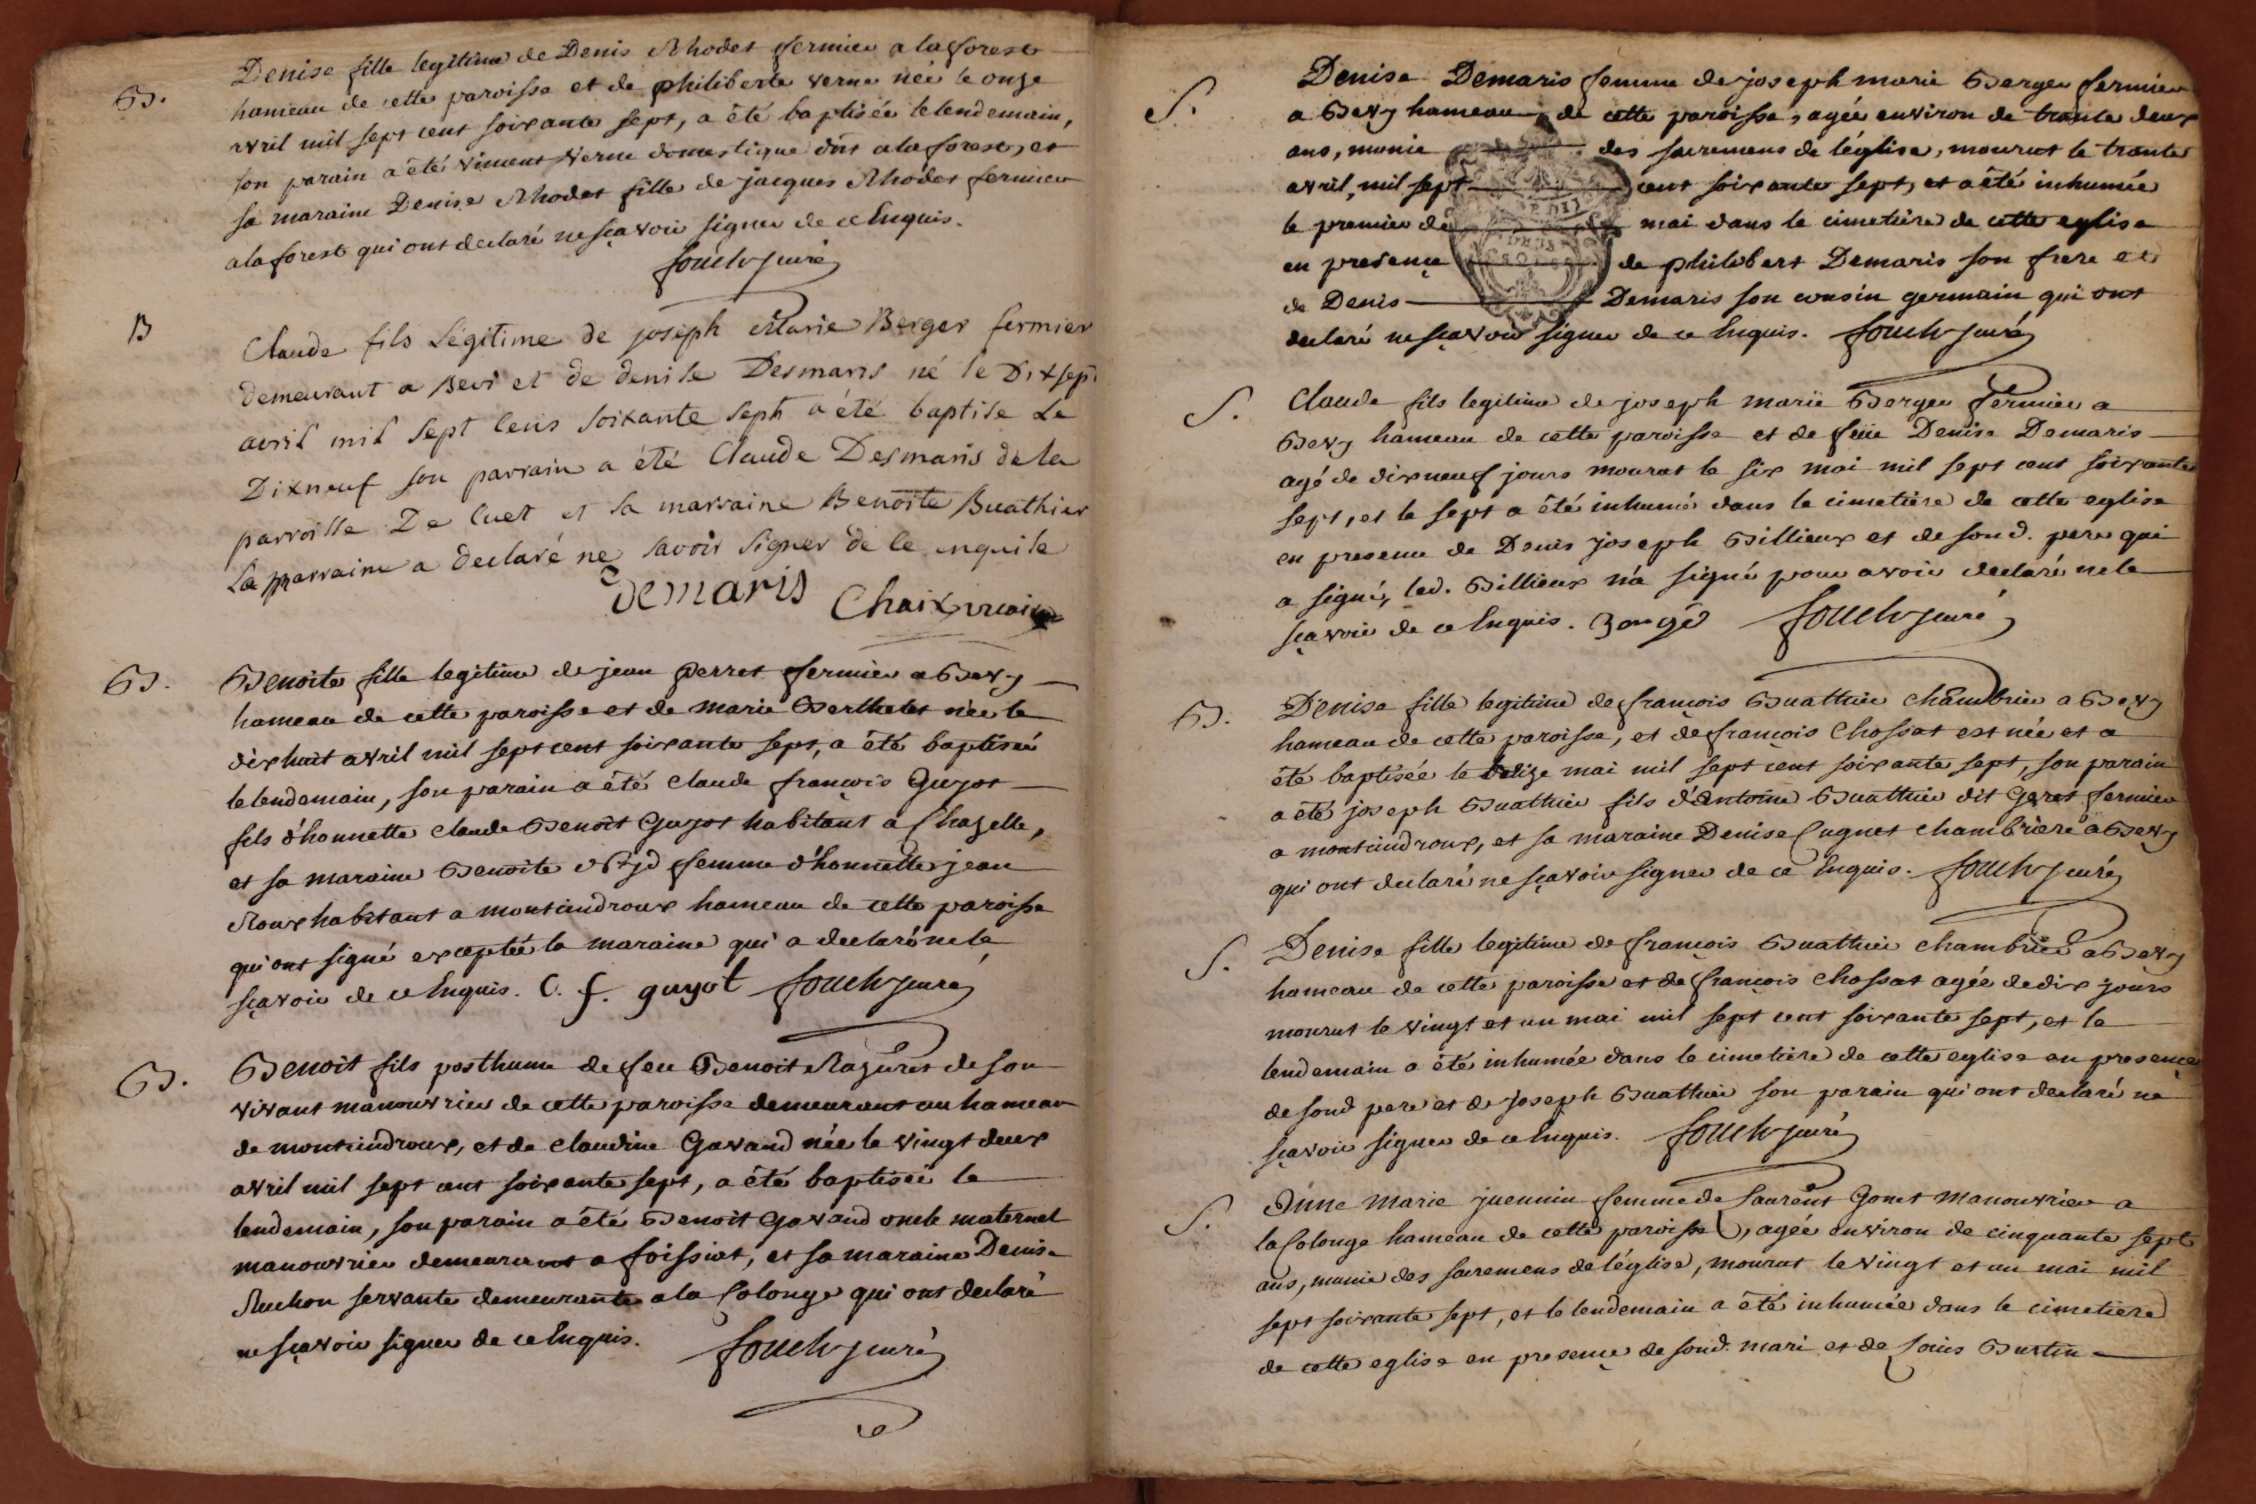 B.
Denise fille legitime de Denis Rhodet fermier a la forest
hameau de cette paroisse et de philiberte verne née le onze
avril mil sept cent soixante sept, a été baptisée le lendemain,
son parain a été vincent verne domestique dud a la forest, et
sa maraine Denise Rhodet fille de jacques Rhodet fermier
a la forest qui ont declaré ne sçavoir signer de ce Enquis.
curé
B
Claude fils Légitime de joseph Marie Berger fermier
demeurant a Bevi et de denise Desmaris né le Dixsept
avril mil sept cens soixante sept a été baptise Le
Dixneuf son parrain a été Claude Desmaris de la
parroisse De Cuet et sa marraine Benoite Buathier
La marraine a declaré ne savoir signer de ce enquise
Demaris Chaix vicaire
B.
Benoite fille legitime de jean perret fermier a Bevy
hameau de cette paroisse et de marie Berthelet née le
dix huit avril mil sept cent soixante sept, a été baptisée
le lendemain, son parain a été Claude françois Guyot
fils d'honnette Claude Benoit Guyot habitant a Chazelle,
et sa maraine Benoite femme d'honnette jean
Roux habitant a montcindroux hameau de cette paroisse
qui ont signé exceptée la maraine qui a declaré ne le
sçavoir de ce Enquis. C. f. guyot curé
B.
Benoit fils posthume de feu Benoit Razuret de son
vivant manouvrier de cette paroisse demeurant au hameau
de montcindroux, et de Claudine Gavand née le vingt deux
avril mil sept cent soixante sept, a été baptisée le
lendemain, son parain a été Benoit Gavand oncle maternel
manouvrier demeurant a foissiat, et sa maraine Denise
Ruchon servante demeurante a la Colonge qui ont declaré
ne sçavoir signer de ce Enquis. curé
S.
Denise Demaris femme de joseph marie Berger fermier
a Bevy hameau de cette paroisse, agée environ de trante deux
ans, munie des sacremens de l'église, mourut le trante
avril mil sept cent soixante sept, et a été inhumée
le premier de mai dans le cimetière de cette eglise
en presence de philibert Demaris son frere et
de Denis Demaris son cousin germain qui ont
declaré ne sçavoir signer de ce Enquis. curé
S.
Claude fils legitime de joseph marie Berger fermier a
Bevy hameau de cette paroisse et de feüe Denise Demaris
agé de dix neuf jours mourut le six mai mil sept cent soixante
sept, et le sept a été inhumé dans le cimetière de cette eglise
en presence de Denis joseph Billieux et de sond. pere qui
a signé, led. Billieux n'a signé pour avoir declaré ne le
sçavoir de ce Enquis. curé
B.
Denise fille legitime de françois Buathier chambrier a Bevy
hameau de cette paroisse, et de françois Chossat est née et a
été baptisée le mai mil sept cent soixante sept, son parain
a été joseph Buathier fils d'Antoine Buathier dit Geret fermier
a montcindroux, et sa maraine Denise Cugnet chambriere a Bevy
qui ont declaré ne sçavoir signer de ce Enquis. curé
S.
Denise fille legitime de françois Buathier chambrier a Bevy
hameau de cette paroisse et de françois Chossat agée de dix jours
mourut le vingt et un mai mil sept cent soixante sept, et le
lendemain a été inhumée dans le cimetiere de cette eglise en presence
de sond pere et de joseph Buathier son parain qui ont declaré ne
sçavoir signer de ce Enquis. curé
S.
Anne marie juennin femme de Laurent Gonet manouvrier a
la Colonge hameau de cette paroisse, agée environ de cinquante sept
ans, munie des sacremens de l'église, mourut le vingt et un mai mil
sept soixante sept, et le lendemain a été inhumée dans le cimetiere
de cette eglise en presence de sond. mari et de Louis Burtin